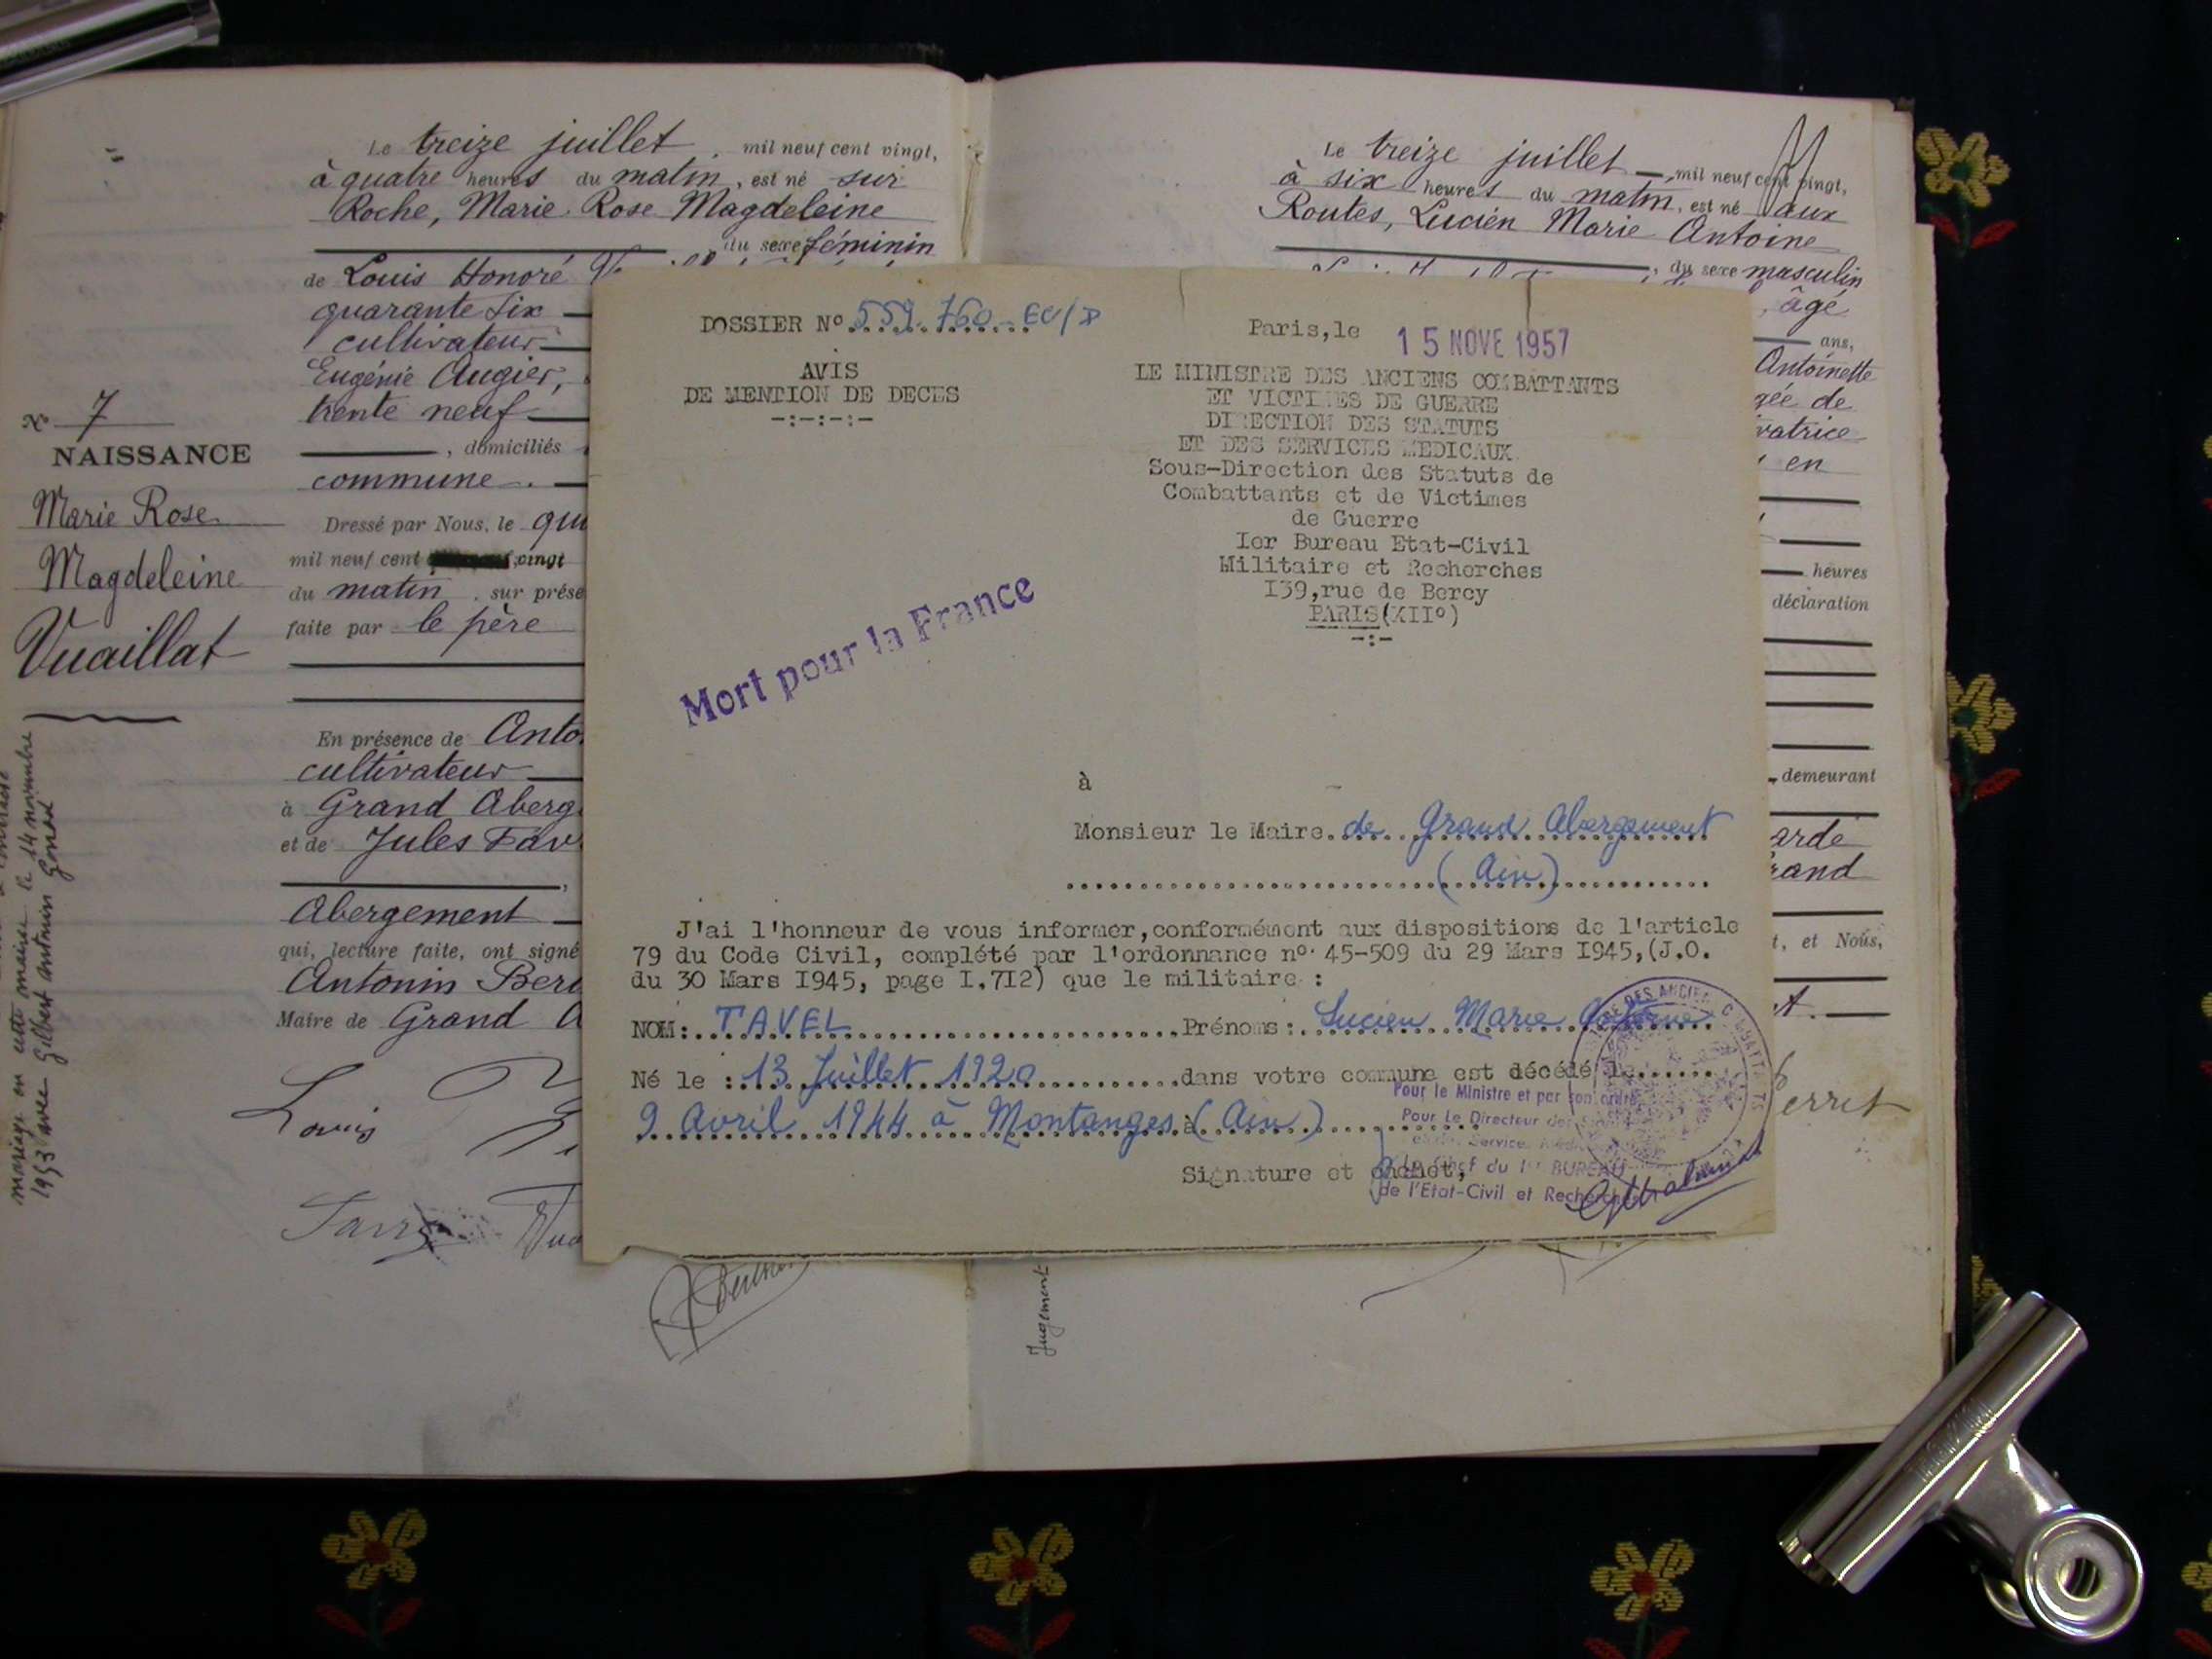 Le treize juillet, mil neuf cent vingt,
à quatre heures du matin, est né sur
Roche, Marie Rose Magdeleine
du sexe féminin
de Louis Honoré
quarante six
cultivateur
Eugénie Augier,
trente neuf
, domiciliés
commune.
Dressé par Nous, le
mil neuf cent vingt
du matin, sur
faite par le père
En présence de
cultivateur
à Grand
et de Jules
Abergement
qui, lecture faite, ont signé
Antonin
Maire de Grand
Louis
N° 7
NAISSANCE
Marie Rose
Magdeleine
Vuaillat
mariage en cette mairie le 14 novembre
1953 avec Gilbert Antonin
DOSSIER N° 559.760 EC/D
AVIS
DE MENTION DE DECES
-:-:-:-
Mort pour la France
Paris,le 15 NOVE 1957
LE MINISTRE DES ANCIENS COMBATTANTS
ET VICTIMES DE GUERRE
DIRECTION DES STATUTS
ET DES SERVICES MEDICAUX
Sous-Direction des Statuts de
Combattants et de Victimes
de Guerre
Ier Bureau Etat-Civil
Militaire et Recherches
I39,rue de Bercy
PARIS(XII°)
-:-
à
Monsieur le Maire de Grand Abergement
(Ain)
J'ai l'honneur de vous informer,conformément aux dispositions de l'article
79 du Code Civil, complété par l'ordonnance n° 45-509 du 29 Mars I945,(J.O.
du 30 Mars I945, page I.7I2) que le militaire :
NOM: TAVEL Prénoms: Lucien Marie Antoine
Né le : 13 Juillet 1920 dans votre commune est décédé le
9 Avril 1944 à Montanges à (Ain)
Signature et cachet,
Pour le Ministre et par son ordre
Pour Le Directeur des
Le Chef du 1er BUREAU
de l'Etat-Civil et Recherches
Le treize juillet, mil neuf cent vingt,
à six heures du matin, est né aux
Routes, Lucien Marie Antoine
, du sexe masculin
, âgé
ans,
Antoinette
de
en
heures
déclaration
, demeurant
, et Nous,
Perret
Jugement